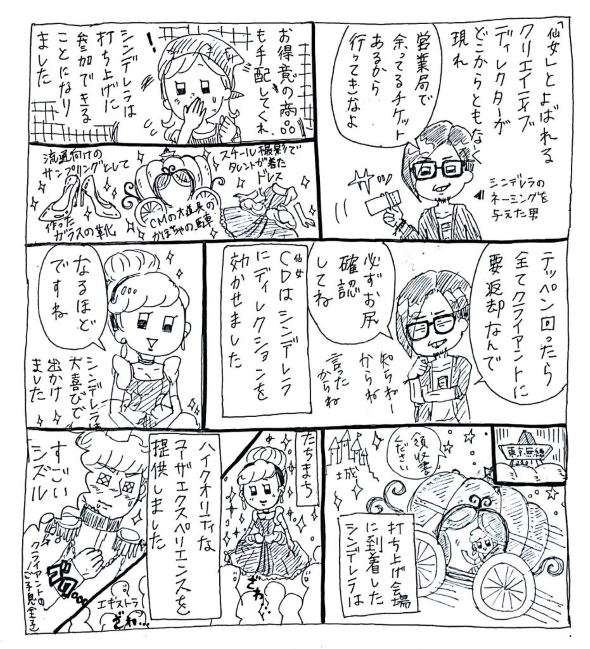 「仙女」とよばれる
クリエイティブ
ディレクターが
どこからともなく
現れ
営業局で
余ってるチケット
あるから
行ってきなよ
シンデレラの
ネーミングを
与えた男
お得意の商品
も手配してくれ
!
シンデレラは
打ち上げに
参加できる
ことになり
ました
スチール撮影で
タレントが着た
ドレス
CMの大道具の
かぼちゃの馬車
流通向けの
サンプリングとして
作った
ガラスの靴
テッペン回ったら
全てクライアントに
要返却なんで
必ずお尻
確認
してね
知らねー
からね
言った
からね
仙女
CDはシンデレラ
にディレクションを
効かせました
なるほど
ですね
シンデレラは
大喜びで
出かけ
ました
東京無線
領収書
ください
城
打ち上げ会場
に到着した
シンデレラは
たちまち
ざわ…
ハイクオリティな
ユーザエクスペリエンスを
提供しました
エキストラ
ざわ…
すごい
シズル
クライアントの
ご子息(王子)